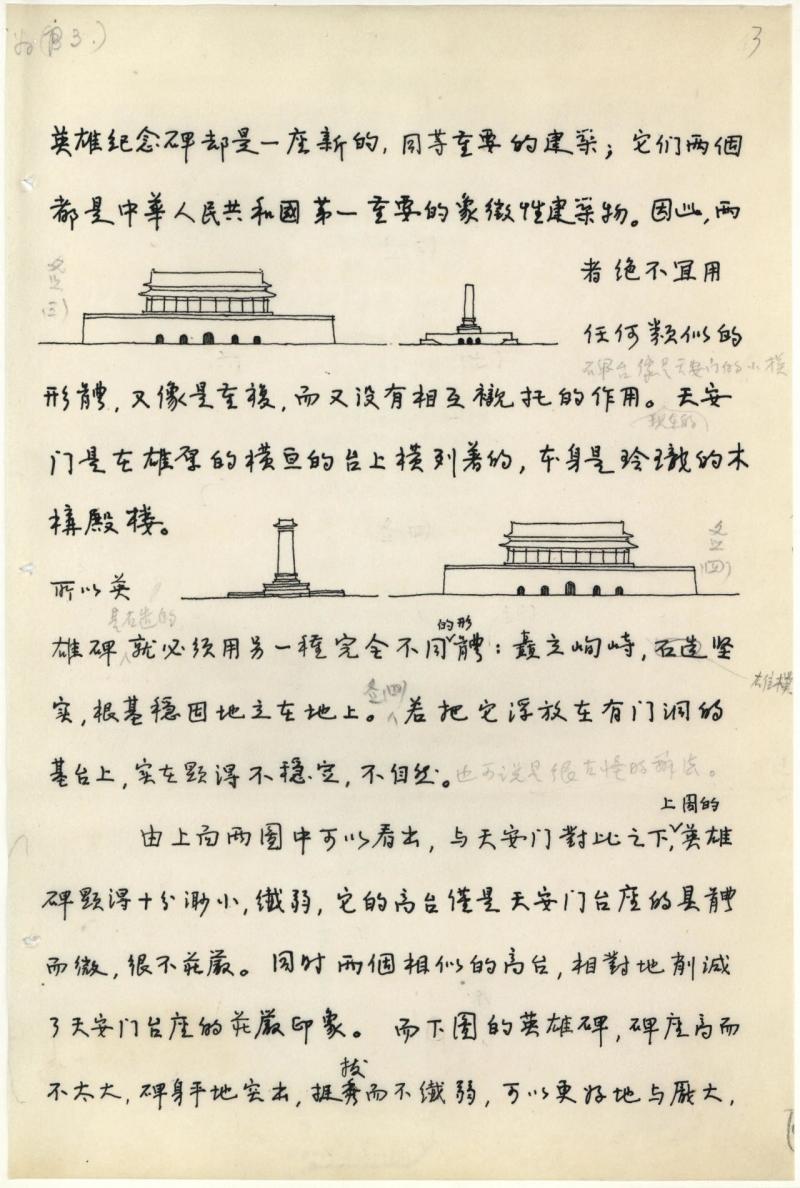 3
英雄纪念碑却是一座新的，同等重要的建築；它们两個
都是中華人民共和國第一重要的象徵性建築物。因此，两
者绝不宜用
任何類似的
碑台像是天安门的小模
形體，又像是重複，而又没有相互襯托的作用。天安
现在的
门是在雄厚的横亘的台上横列着的，本身是玲瓏的木
構殿楼。
所以英
的形
雄碑就必须用另一種完全不同體：矗立峋峙，石造坚
雄模
实，根基穩固地立在地上。若把它浮放在有门洞的
基台上，实在顕得不稳定，不自然。也可说是很古怪的辦法。
上图的
由上面两图中可以看出，与天安门對比之下，英雄
碑顕得十分渺小，纖弱，它的高台僅是天安门台座的具體
而微，很不莊嚴。同时两個相似的高台，相對地削减
了天安门台座的莊嚴印象。而下图的英雄碑，碑座高而
拔
不太大，碑身平地突出，挺秀而不纖弱，可以更好地与厐大，